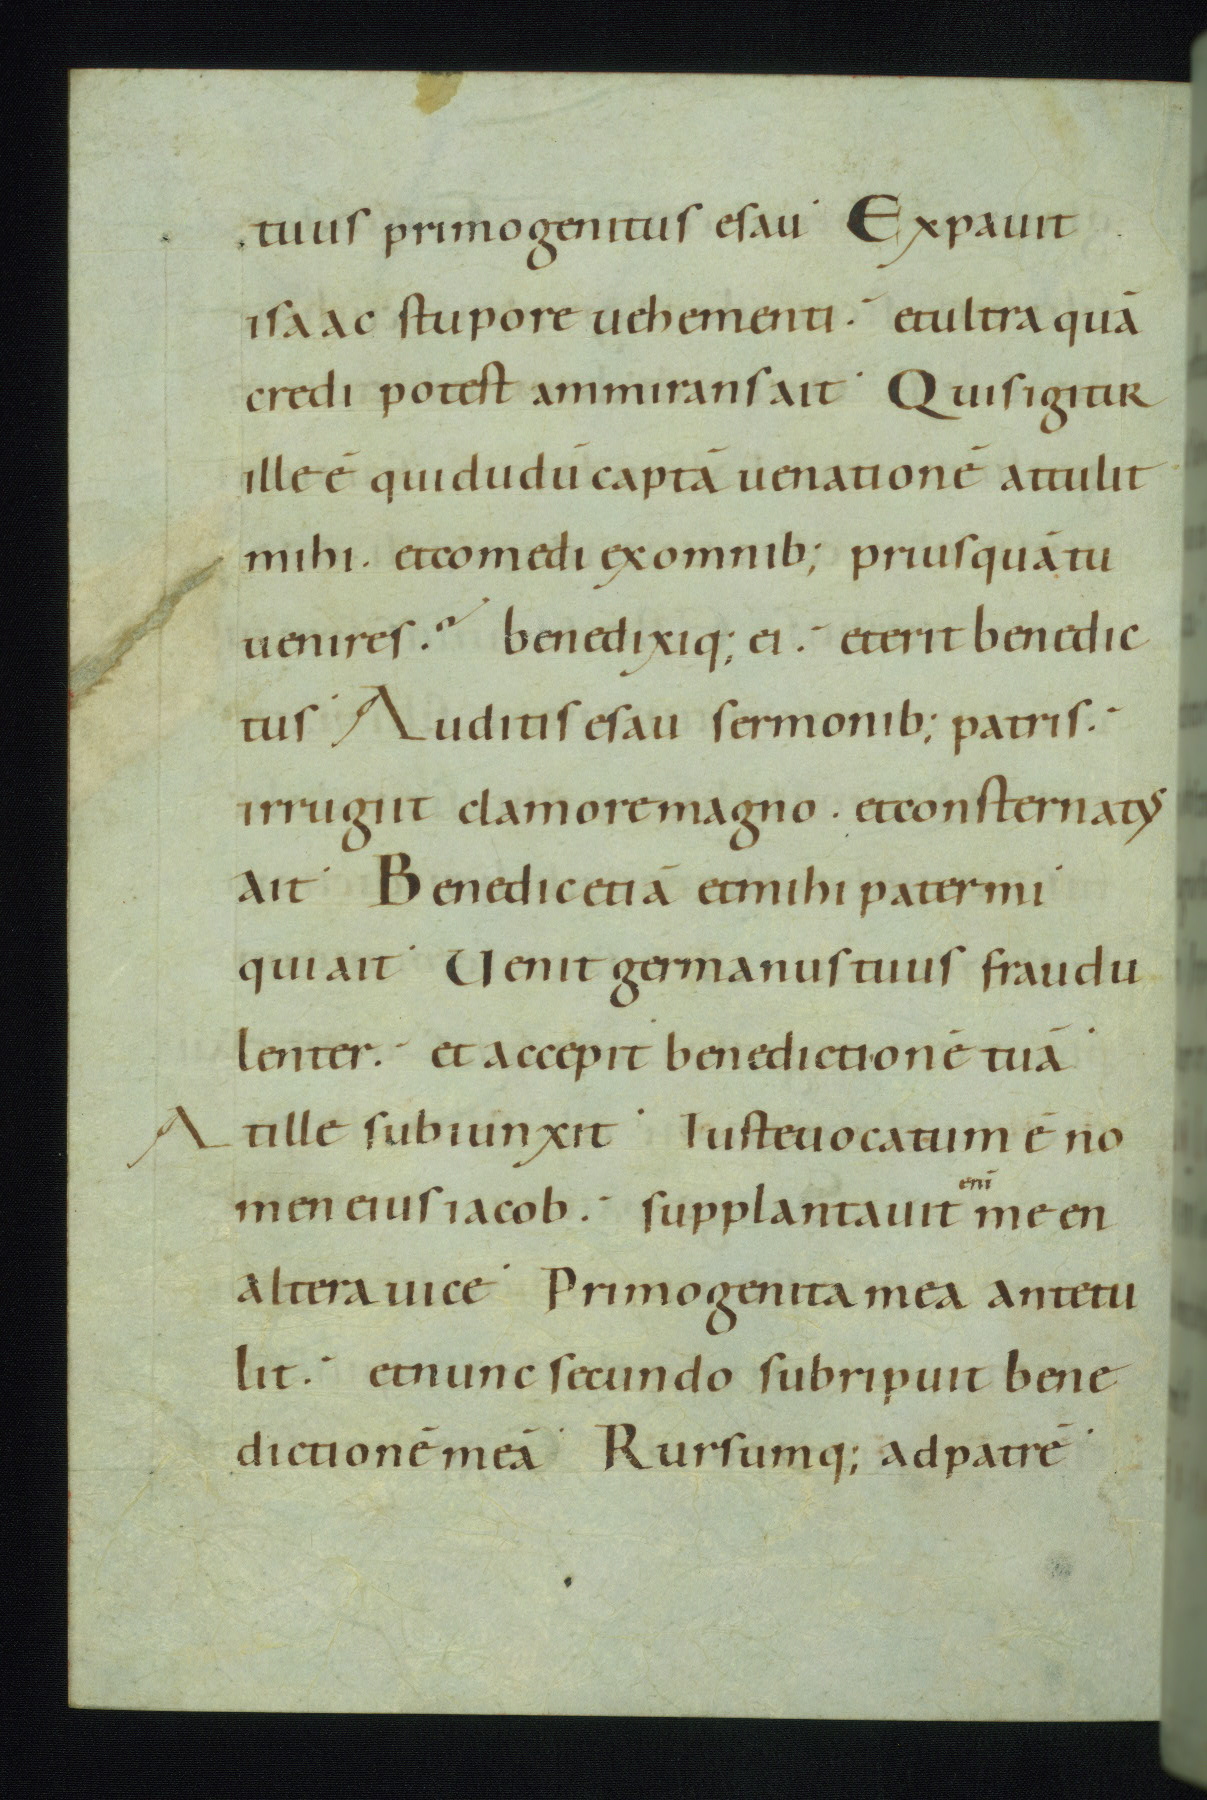 tuus primogenitus esau· Expauit
isaac stupore uehementi· et ultra quā
credi potest ammirans ait· Quis igitur
ille ē qui dudū captā uenationē attulit
mihi· et comedi ex omnib; priusquā tu
uenires· benedixiq; ei· et erit benedic
tus· Auditis esau sermonib; patris·
irrugiit clamore magno· et consternatus
ait· Benedic etiā et mihi pater mi·
qui ait· Uenit germanus tuus fraudu
lenter· et accepit benedictionē tuā·
At ille subiunxit· Iuste uocatum ē no
men eius iacob· supplantauit enī me en
altera uice· Primogenita mea ante tu
lit· et nunc secundo subripuit bene
dictionē meā· Rursumq; ad patrē·